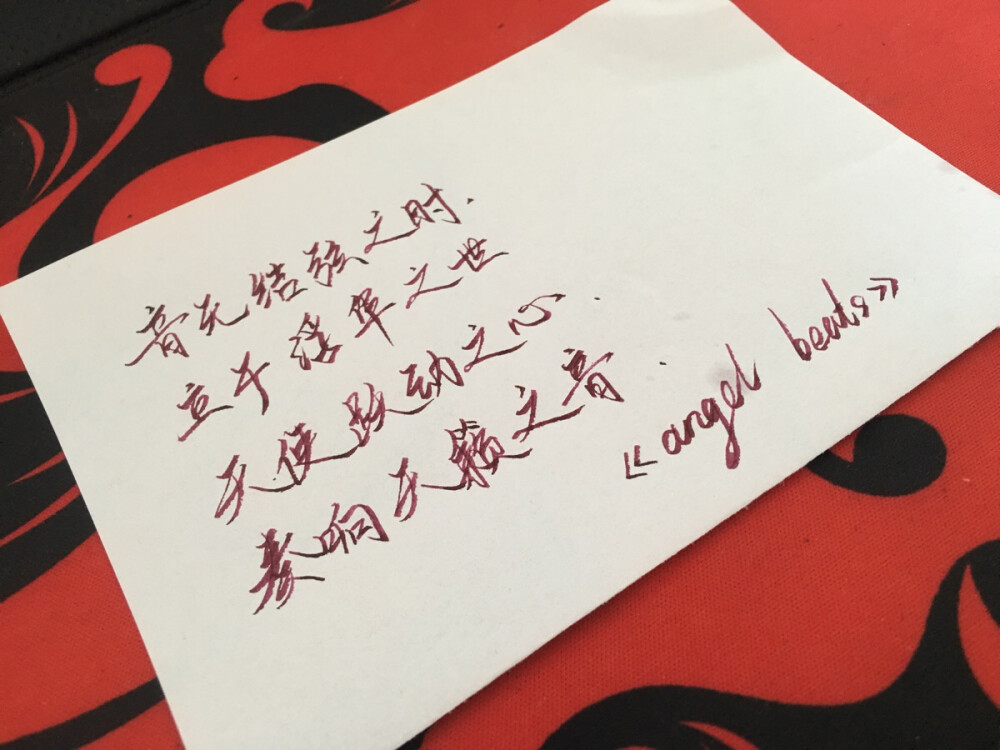 音无结弦之时.
立于浮华之世
天使跃动之心.
奏响天籁之音.
《angel beats》